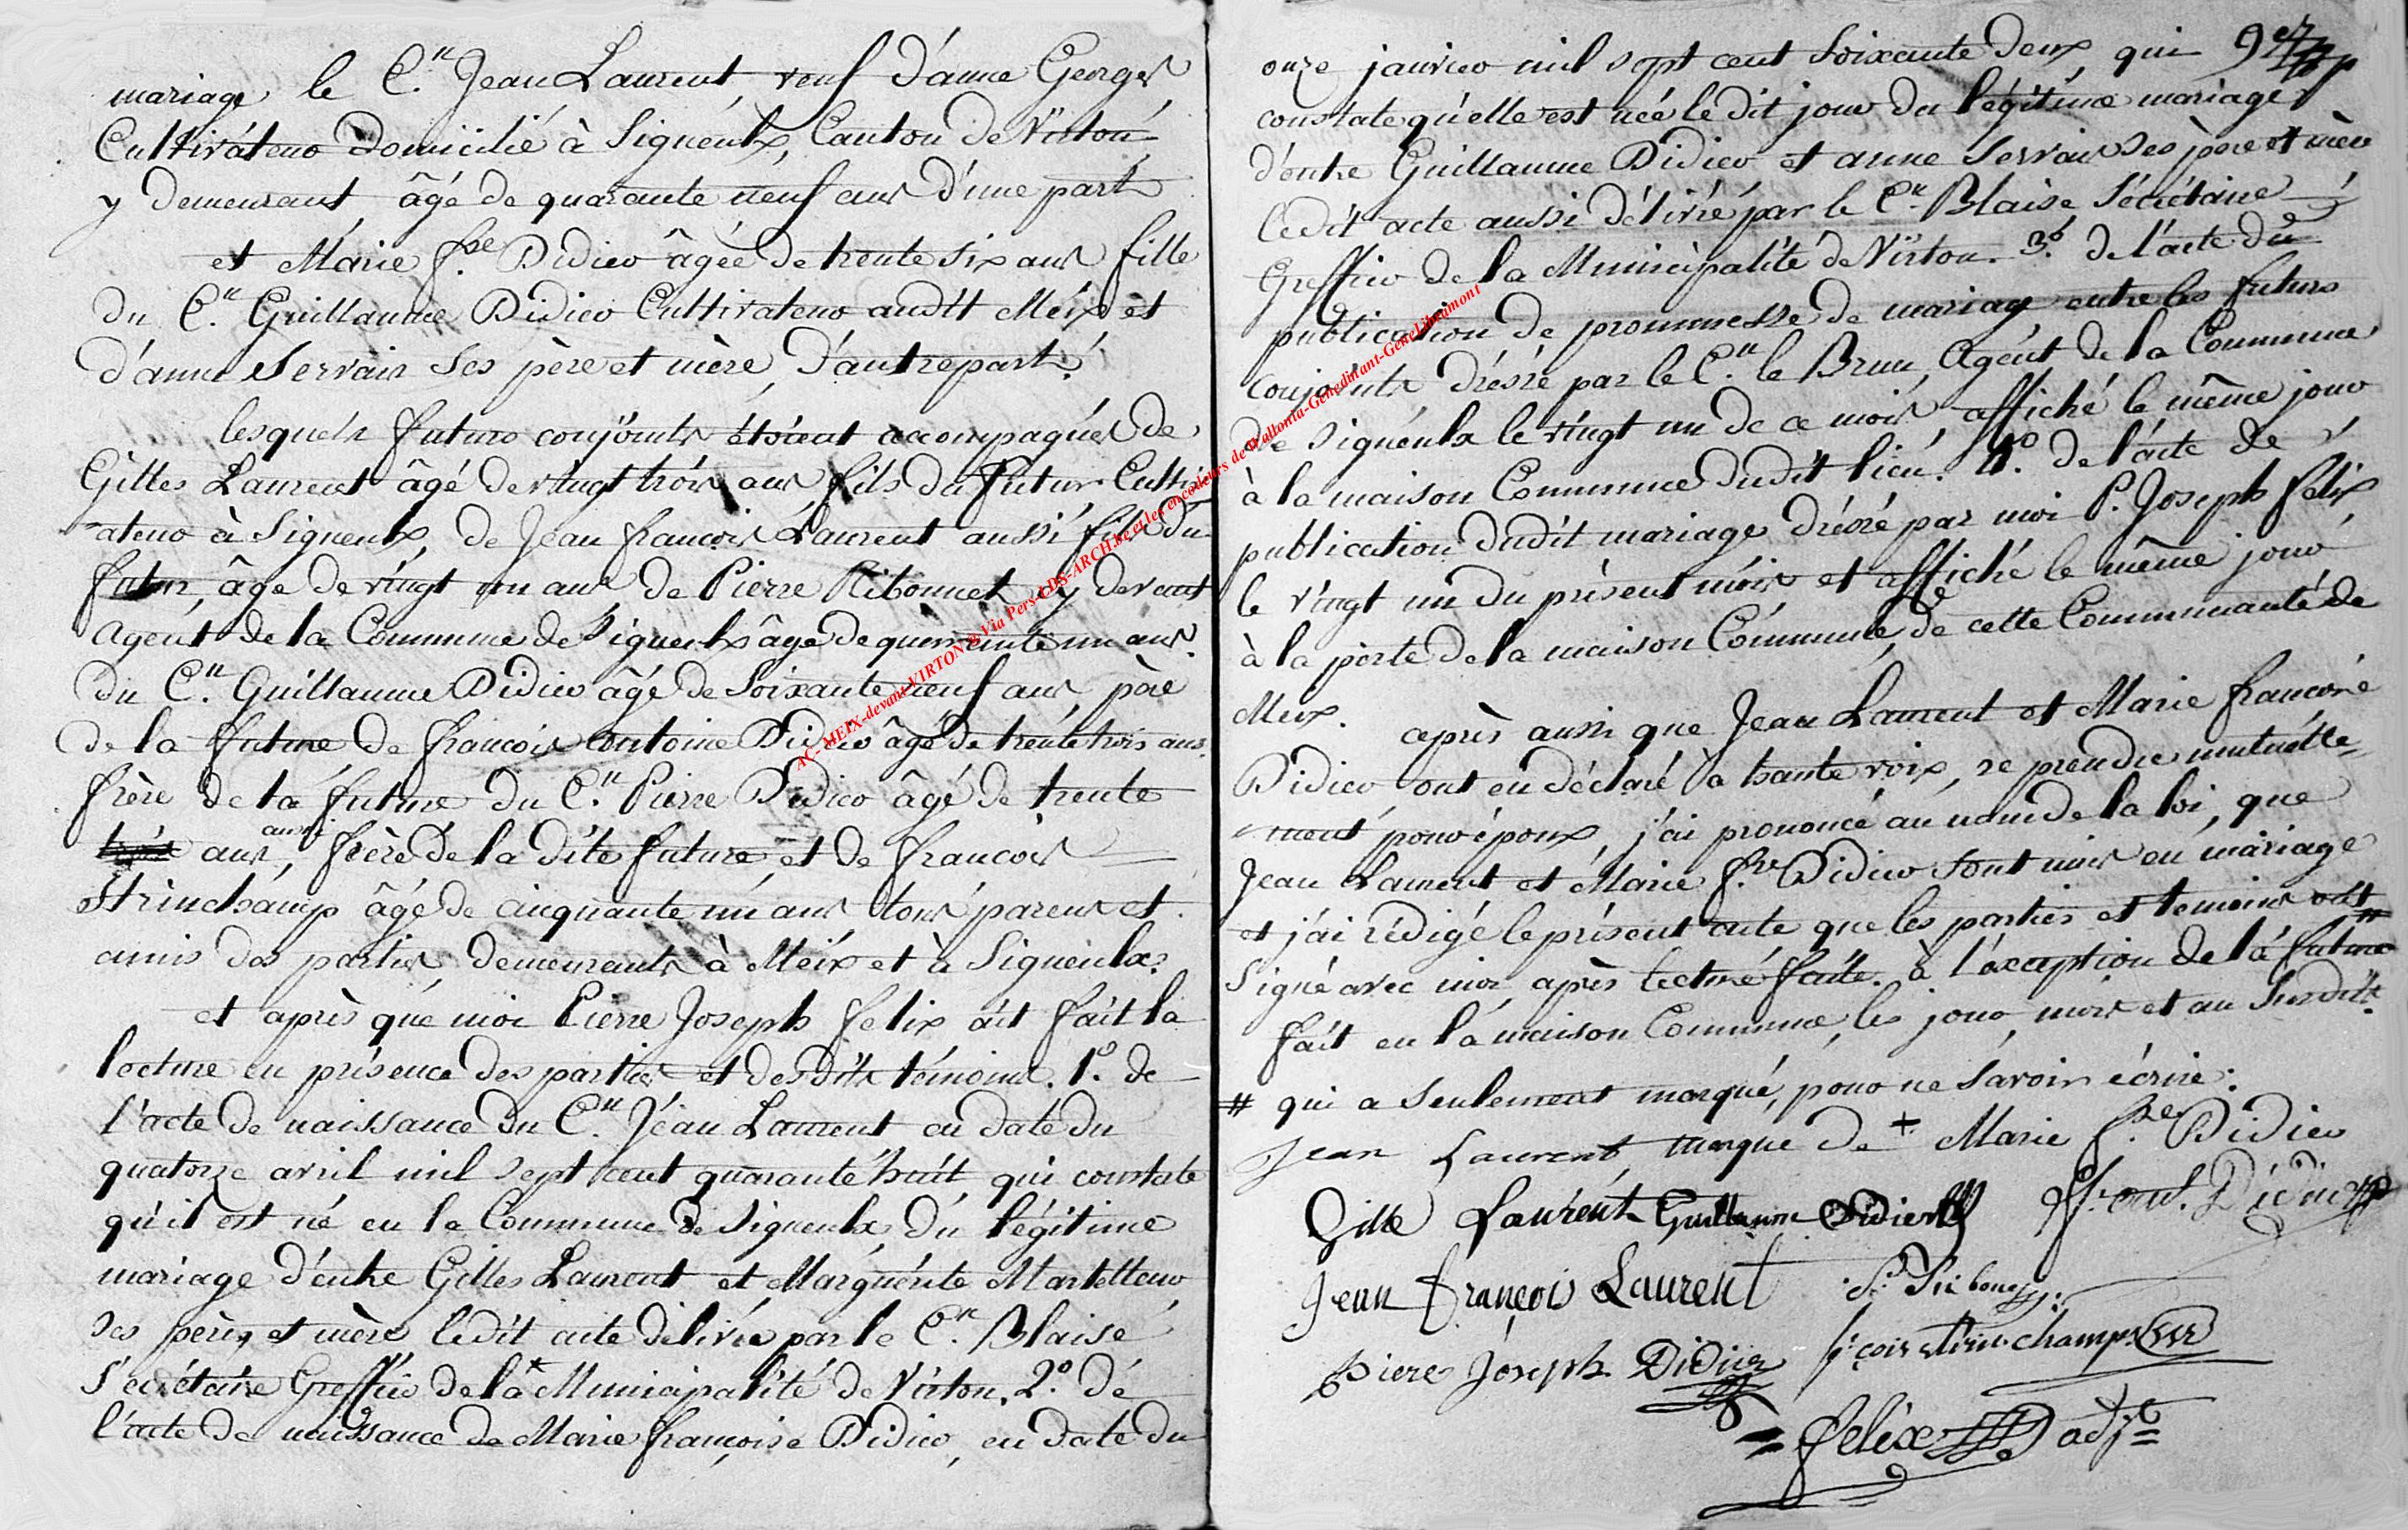 mariage le C.en Jean Laurent, veuf d'anne Georges
Cultivateur Domicilié à Signeulx, Canton de Virton
y demeurant, âgé de quarante neuf ans d'une part
et Marie f.se Didier âgée de trente six ans fille
du C.en Guillaume Didier Cultivateur audit Meix et
d'anne Servais Ses père et mère, D'autre part.
lesquels futurs conjoints étoient accompagnés de
Gilles Laurent âgé de vingt trois ans fils du futur Culti
-ateur à Signeulx, de Jean francois Laurent aussi fils du
futur, âge de vingt un ans de Pierre Ribonnet, cy devant
agent de la Commune de Signeulx âge de quarrante un ans.
du C.en Guillaume Didier âgé de Soixante neuf ans, père
de la future, de francois antoine Didier âgé de trente trois ans
frère de la future du C.en Pierre Didier âgé de trente
trois ans, aussi frère de la dite future, et de francois
Strinchamp âgé de cinquante un ans tous parens et
amis des parties, demeurants à Meix et à Signeulx.
et après que moi Pierre Joseph felix ait fait la
lecture en présence des parties et desdits témoins. 1.° de
l'acte de naissance du C.en Jean Laurent en date du
quatorze avril mil sept cent quarante huit qui constate
qu'il est né en la Commune de Signeulx, du légitime
mariage d'entre Gilles Laurent et Marguerite Martelleur
Ses père, et mère ledit acte délivré par le C.en Blaise
Secrétaire Greffier de la Municipalité de Virton, 2.° de
l'acte de naissance de Marie françoise Didier, en date du
onze janvier mil sept cent Soixante Deux, qui 9er
constate qu'elle est née ledit jour du légitime mariage
d'entre Guillaume Didier et anne Servais Ses père et mère
ledit acte aussi délivré par le C.en Blaise Sécrétaire
Greffier de la Municipalité de Virton. 3.° de l'acte du
publication de prommesse de mariage entre les futurs
Conjoints dréssé par le C.en le Brun, Agent de la Commune
de Signeulx le vingt un de ce mois, affiché le même jour
à la maison Commune dudit lieu. 4.° de l'acte de
publication dudit mariage dréssé par moi P. Joseph felix
le vingt un du présent mois et affiché le même jour
à la porte de la maison Commune, de cette Communauté de
Meix. après aussi que Jean Laurent et Marie francoise
Didier ont eu déclaré à haute voix, se prendre mutuelle
-ment pour époux, j'ai prononcé au nom de la loi, que
Jean Laurent et Marie f.se Didier Sont unis en mariage
et j'ai rédigé le présent acte que les parties et temoins ont
Signé avec moi, après lecture faite. à l'éxception de la future #
fait en la maison Commune, les jour, mois et an Susdits.
# qui a Seulement marqué, pour ne Savoir écrire:
Jean Laurent marque de + Marie f.se Didier
Gille Laurent Guillaume Didier
Jean François Laurent
Piere Joseph Didier
felix adj.
AC- MEIX-devant-VIRTON @ Via Pers-CDS-ARCH.be et les encodeurs de Wallonia-Genedinant-GeneLibramont